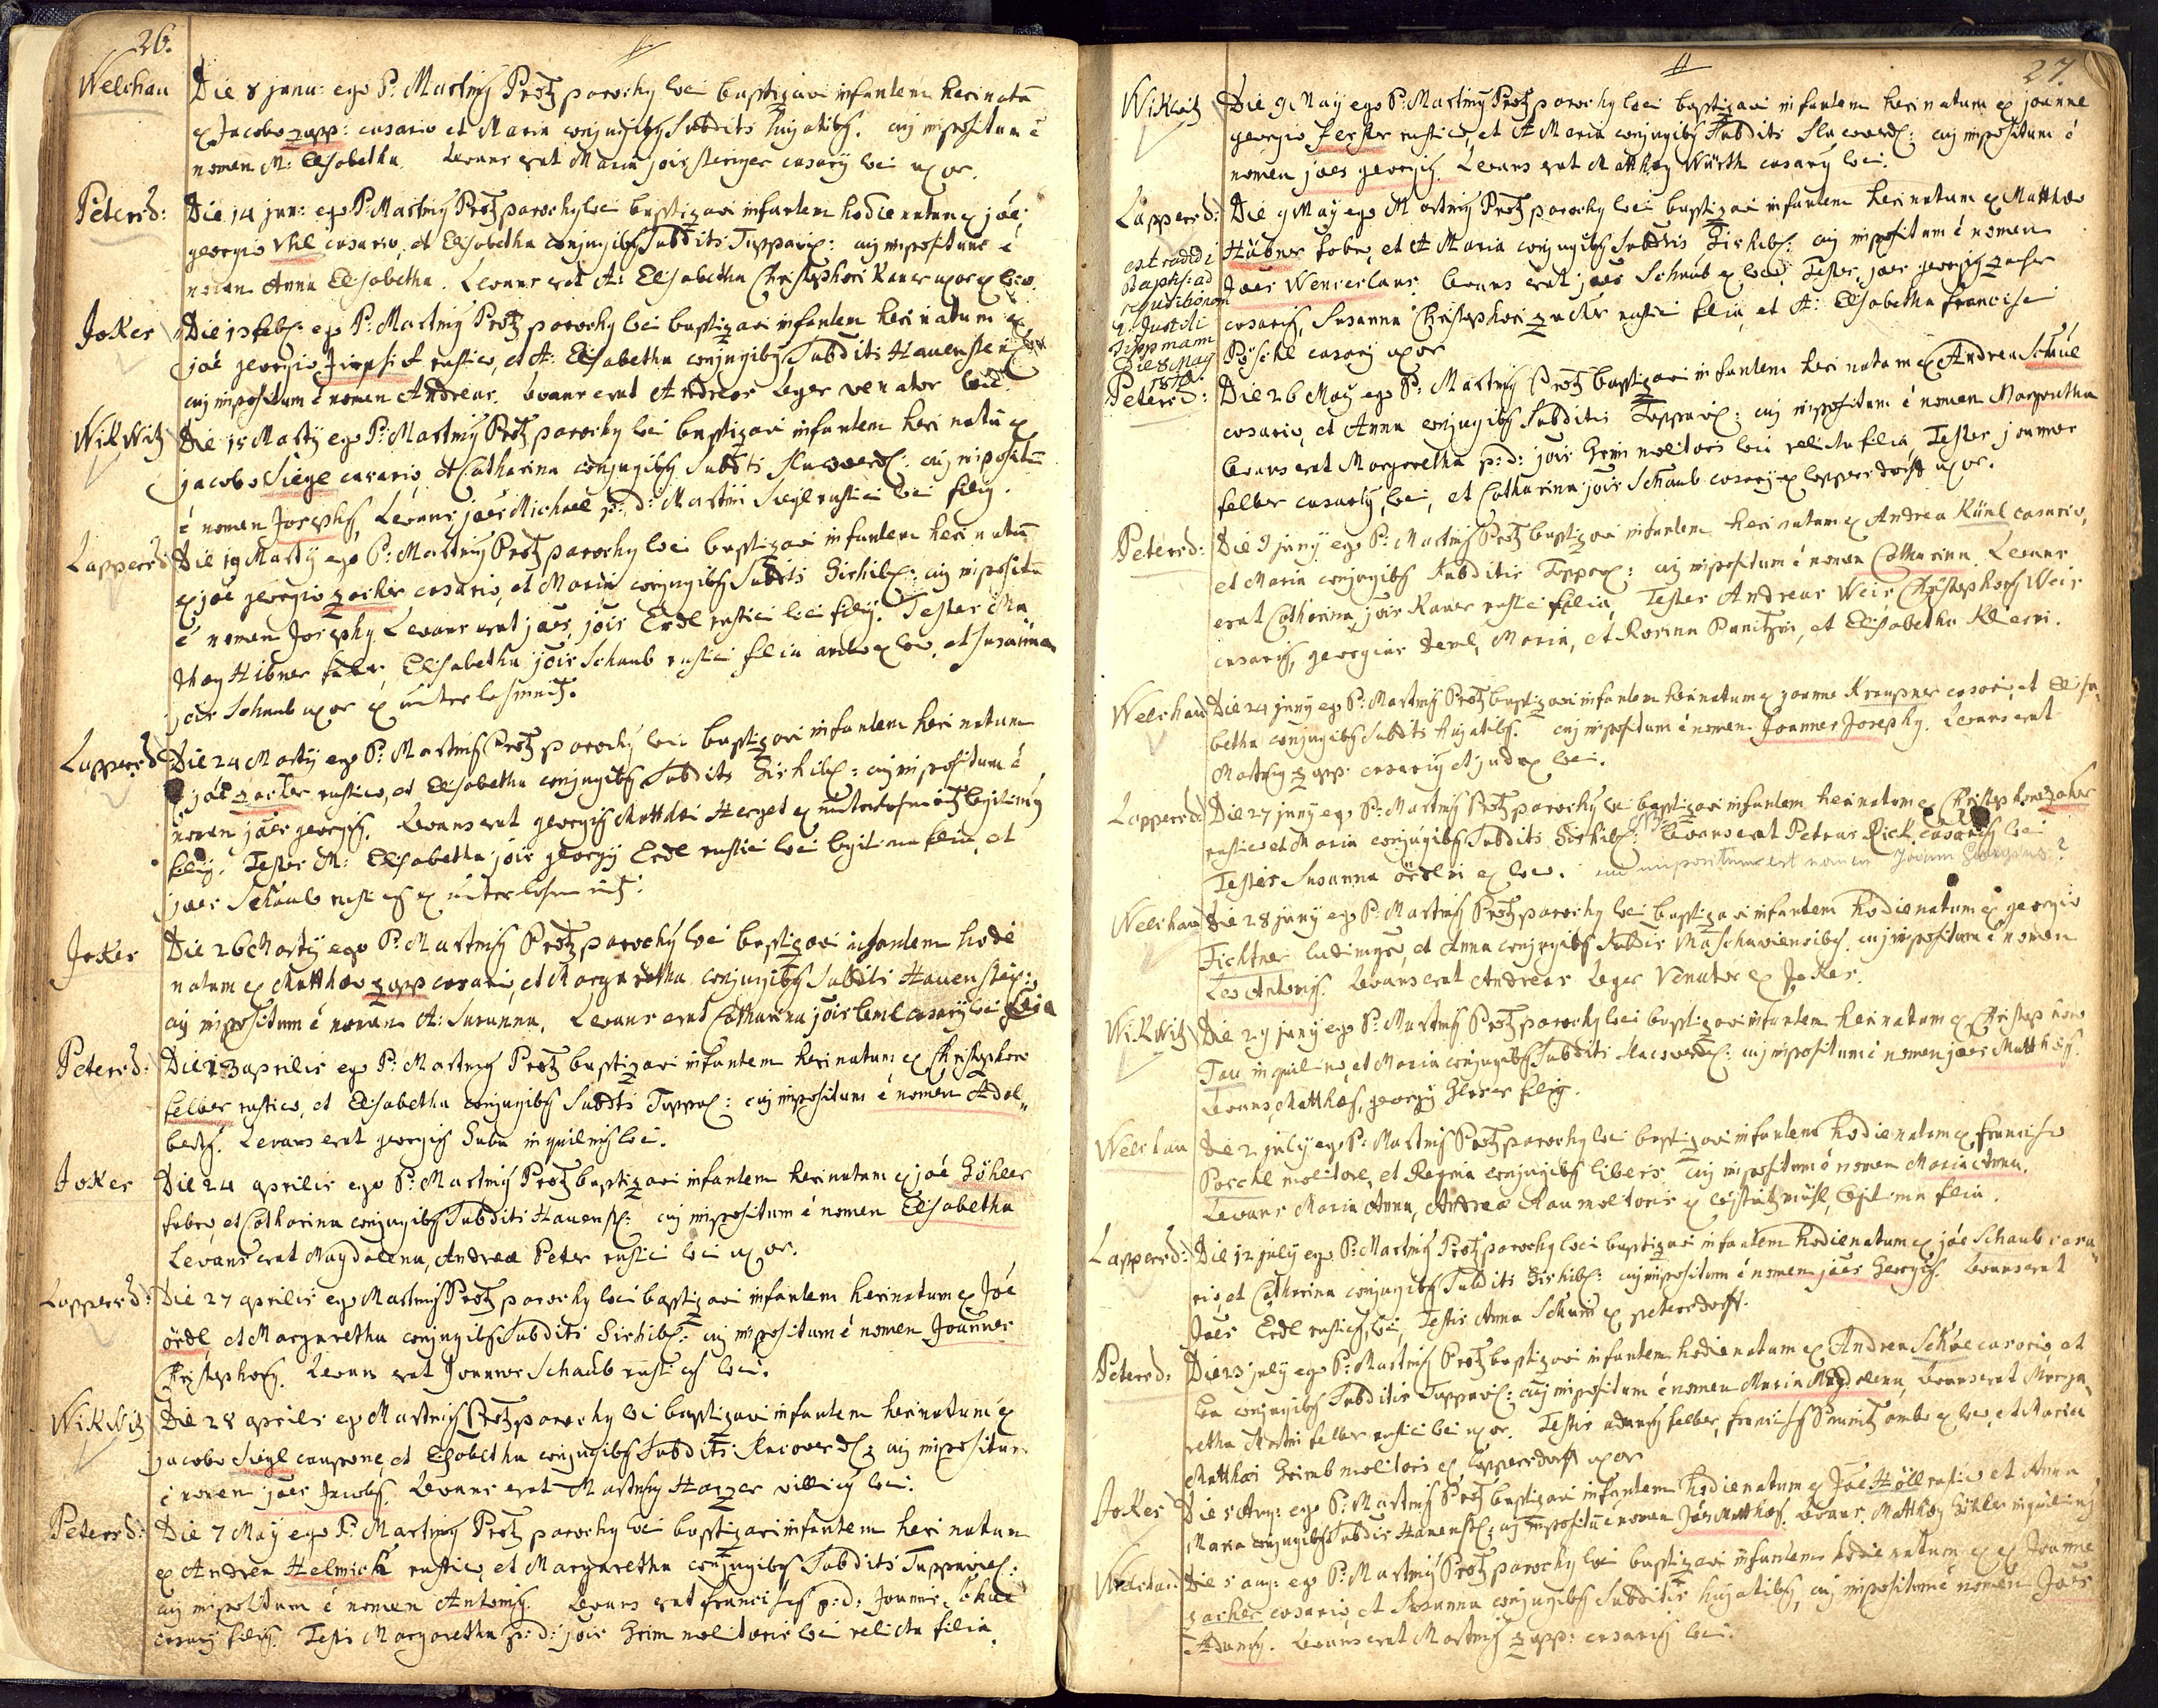 26.
Welchau
Die 8 janu: ego P: Martinus Protz parochus loci baptizavi infantem heri natū
ex Jacobo Zapp: casario et Maria conjugibus Subditis hujatibus. cui impositum ē
nomen M: Elisabetha. Levans erat Maria jois steriger casarij loci uxor.
Petersd:
Die 14 jan: ego P: Martinus Protz parochus loci baptizavi infantem hodie natum ex joē
georgio Uhl casario, et Elisabetha conjugibus Subditis Toppaviē: cui impositum ē
nomen Anna Elisabetha. Levans erat A: Elisabetha Christophori Kaner uxor ex loco.
JoKes
Die 13 feb: ego P: Martinus Protz parochus loci baptizavi infantem heri natum ex
joē georgio rustico, et A: Elisabetha conjugibus Subditis Hauenstei
cui impositum ē nomen Andreas. Levans erat Andreas Leger venator loci.
WiKWitz
Die 15 Martij ego P: Martinus Protz parochus loci baptizavi infantem heri natū ex
jacobo Siegl casario, et Catharina conjugibus Subditis : cui impositū
ē nomen Josephus, Levans joes Michael p: d: Martini Siegl rustici loci filius.
Lappersd:
Die 19 Martij ego P: Martinus Protz parochus loci baptizavi infantem heri natū
ex joē georgio Zacher casario, et Maria conjugibus Subditis Gishib: cui impositū
ē nomen Josephus. Levans erat joes, jois Erdl rustici loci filius. Testes Ma
thaeus Hibner faber, Elisabetha jois Schaub rustici filia ambo ex loco, et Susanna
jois Schaub uxor ex unterlosmitz.
Lappersd:
Die 24 Martij ego P: Martinus Protz parochus loci baptizavi infantem heri natum
joē Zacher rustico, et Elisabetha conjugibus Subditis Gishib: cui impositum ē
nomen joes georgius. Levans erat georgius Matthaei Herget ex legitimus
filius. Testes M: Elisabetha jois georgij Erdl rustici loci legitima filia, et
joes Schaub rusticus ex unterlosmitz.
JoKes
Die 26 Martij ego P: Martinus Protz parochus loci baptizavi infantem hodie
natum ex Matthaeo Zapp casario, et Margaretha conjugibus Subditis Hauenstei:
cui impositum ē nomen A: Susanna. Levans erat Catharina jois Leml casarij loci filia
Petersd:
Die 13 aprilis ego P: Martinus Protz baptizavi infantem heri natum ex Christophoro
felber rustico, et Elisabetha conjugibus Subditis Toppa: cui impositum ē nomen Adal„
bertus. Levans erat georgius inquilinus loci.
JoKes
Die 24 aprilis ego P: Martinus Protz baptizavi infantem heri natum ex joē Göhler
fabro, et Catharina conjugibus Subditis Hauenst: cui impositum ē nomen Elisabetha
Levans erat Magdalena, Andreae Peter rustici loci uxor.
Lappersd:
Die 27 aprilis ego Martinus Protz parochus loci baptizavi infantem heri natum ex Joē
ördl, et Margaretha conjugibus Subditis Gishib: cui impositum ē nomen Joannes
Christophorus. Levans erat Joannes Schaub rusticus loci.
WiKWitz
Die 28 aprilis ego Martinus Protz parochus loci baptizavi infantem heri natum ex
jacobo Siegl caupone, et Elisabetha conjugibus Subditis : cui impositum
ē nomen joes Jacobus. Levans erat Martinus villicus loci.
Petersd:
Die 7 May ego P: Martinus Protz parochus loci baptizavi infantem heri natum
ex Andrea Helmich rustico, et Margaretha conjugibus Subditis Toppaviē:
cui impositum ē nomen Antonius. Levans erat franciscus p: d: Joannis
casarij filius. Testis Margaretha p: d: jois Grim molitoris loci relicta filia.
27.
WiKWitz
Die 9 May ego P: Martinus Protz parochus loci baptizavi infantem heri natum ex joanne
georgio Ferster rustico, et A Maria conjugibus Subditis : cui impositum ē
nomen joes georgius. Levans erat Matthaeus Würth casarius loci.
Lappersd:
extradidi
Baptis: ad
requisitionem
Die 8 May
Die 9 May ego Martinus Protz parochus loci baptizavi infantem heri natum ex Matthaeo
Hübner fabro, et A Maria conjugibus Subditis Gishib: cui impositum ē nomen
Joes Wenceslaus. Levans erat joes Schaub ex loco, Testes, joes georgius Zacher
casarius, Susanna Christophori Zacher rustici filia, et A: Elisabetha francisci
Pöschl casarij uxor
Petersd:
Die 26 May ego P: Martinus Protz baptizavi infantem heri natam ex Andrea
casario, et Anna conjugibus Subditis Toppavi: cui impositum ē nomen Margaretha
Levans erat Margaretha p: d: jois Grim molitoris loci relicta filia, Testes joannes
felber casarius loci, et Catharina jois Schaub casarij ex Lappersdorff uxor.
Petersd:
Die 9 junij ego P: Martinus Protz baptizavi infantem heri natam ex Andrea Künl casario,
et Maria conjugibus Subditis Toppa: cui impositum ē nomen Catharina. Levans
erat Catharina jois Kaner rustici filia, Testes Andreas Weis, Christophorus Weis
casarius, georgius , Maria, et Rosina Panitzin, et Elisabetha
Welchau
Die 24 junij ego P: Martinus Protz baptizavi infantem heri natum ex joanne Kreusner casario, et Elisa„
betha conjugibus Subditis hujatibus. cui impositum ē nomen Joannes Josephus. Levans erat
Martinus Zapp casarius et judex loci.
Lappersd:
Die 27 junij ego P: Martinus Protz parochus loci baptizavi infantem heri natum ex Christophoro Zacher
rustico et Maria conjugibus Subditis Gishib: Levans erat Petrus Rick casarius loci
Testis Susanna ördlin ex loco. cui impositum est nomen Joann Georgius?
Welchau
Die 28 junij ego P: Martinus Protz parochus loci baptizavi infantem hodie natum ex georgio
Fichtner ludimagro, et Anna conjugibus Subditis Maschaviensibus. cui impositum ē nomen
Leo Antonius. Levans erat Andreas Leger Venator ex JoKes.
WiKWitz
Die 29 junij ego P: Martinus Protz parochus loci baptizavi infantem heri natum ex Christophoro
Tau inquilino, et Maria conjugibus Subditis : cui impositum ē nomen joes Matthaeus.
Levans, Matthaeus, georgij Gloser filius.
Welchau
Die 2 july ego P: Martinus Protz parochus loci baptizavi infantem hodie natam ex francisco
Porckl molitore, et Regina conjugibus liberis. cui impositum ē nomen Maria Anna.
Levans Maria Anna, Andreae Rau molitoris ex legitima filia.
Lappersd:
Die 12 july ego P: Martinus Protz parochus loci baptizavi infantem hodie natum ex joē Schaub casa„
rio, et Catharina conjugibus Subditis Gishib: cui impositum ē nomen joes Georgius. Levans erat
Joes Erdl rusticus loci, Testis Anna ex petersdorff.
Petersd:
Die 23 july ego P: Martinus Protz baptizavi infantem hodie natam ex Andrea casario, et
Eva conjugibus Subditis Toppavi: cui impositum ē nomen Maria Magdalena, Levans erat Marga„
retha Martini felber rustici loci uxor. Testes adamus felber, franciscus ambo ex loco, et Maria
Matthaei Grimb molitoris ex Lappersdorff uxor
JoKes
Die 5 Aug: ego P: Martinus Protz baptizavi infantem hodie natum ex Joē Höll rustico et Anna
Maria conjugibus Subditis Hauenst: cui impositū ē nomen Joes Matthaeus. Levans. Matthaeus Göhler inquilinus
Welchau
Die 5 aug: ego P: Martinus Protz parochus loci baptizavi infantem hodie natum ex ex Joanne
Zacher casario, et Susanna conjugibus Subditis hujatibus, cui impositum ē nomen Joes
Adamus. Levans erat Martinus Zapp: casarius loci.